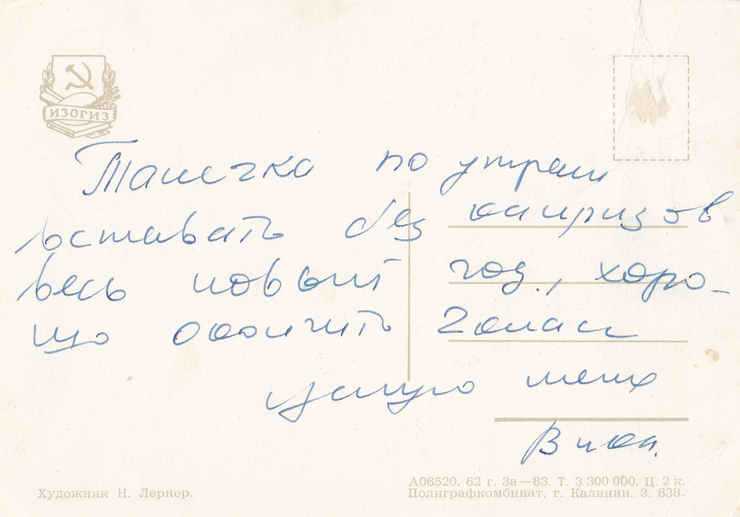 ИЗОГИЗ
Танечка по утрам
вставать без капризов
весь новый год, хоро-
шо окончить 2 класс
целую
Художник Н. Лернер.
А06520. 62 г. Зак—83. Т. 3 300 000. Ц. 2 к.
Полиграфкомбинат, г. Калинин. З. 638.